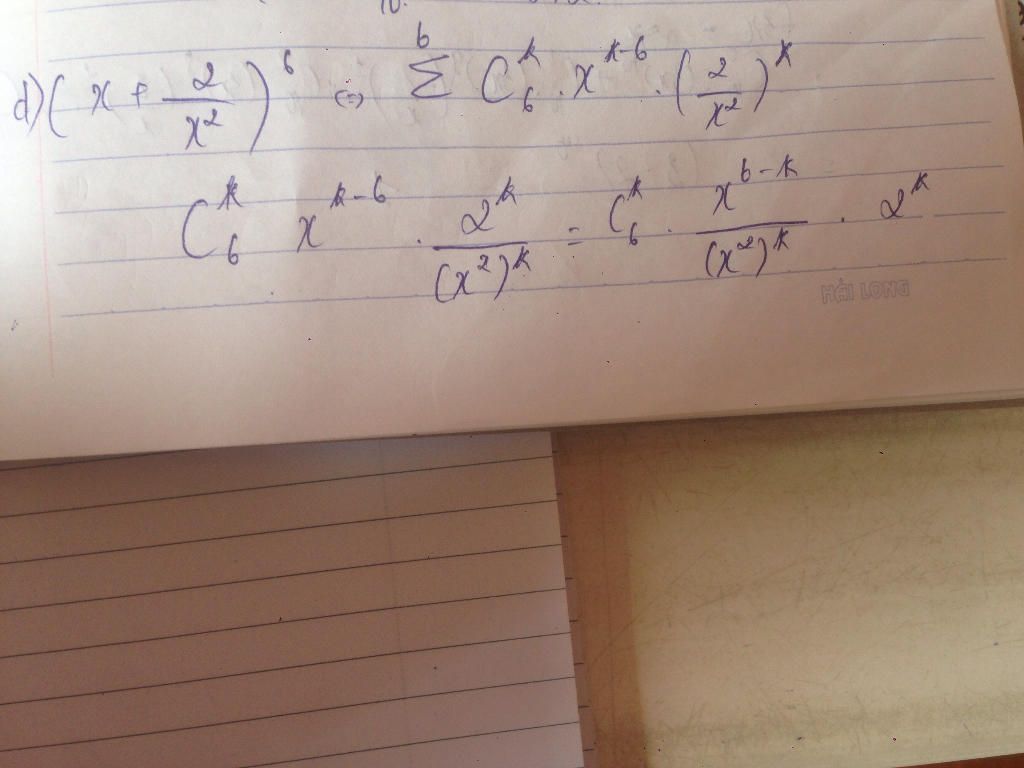 d) (x + 2/x²)⁶ (=) ⁶Σ C₆ᵏ . xᵏ⁻⁶ . (2/x²)ᵏ
C₆ᵏ xᵏ⁻⁶ . 2ᵏ/(x²)ᵏ = C₆ᵏ . x⁶⁻ᵏ/(x²)ᵏ . 2ᵏ
HẢI LONG